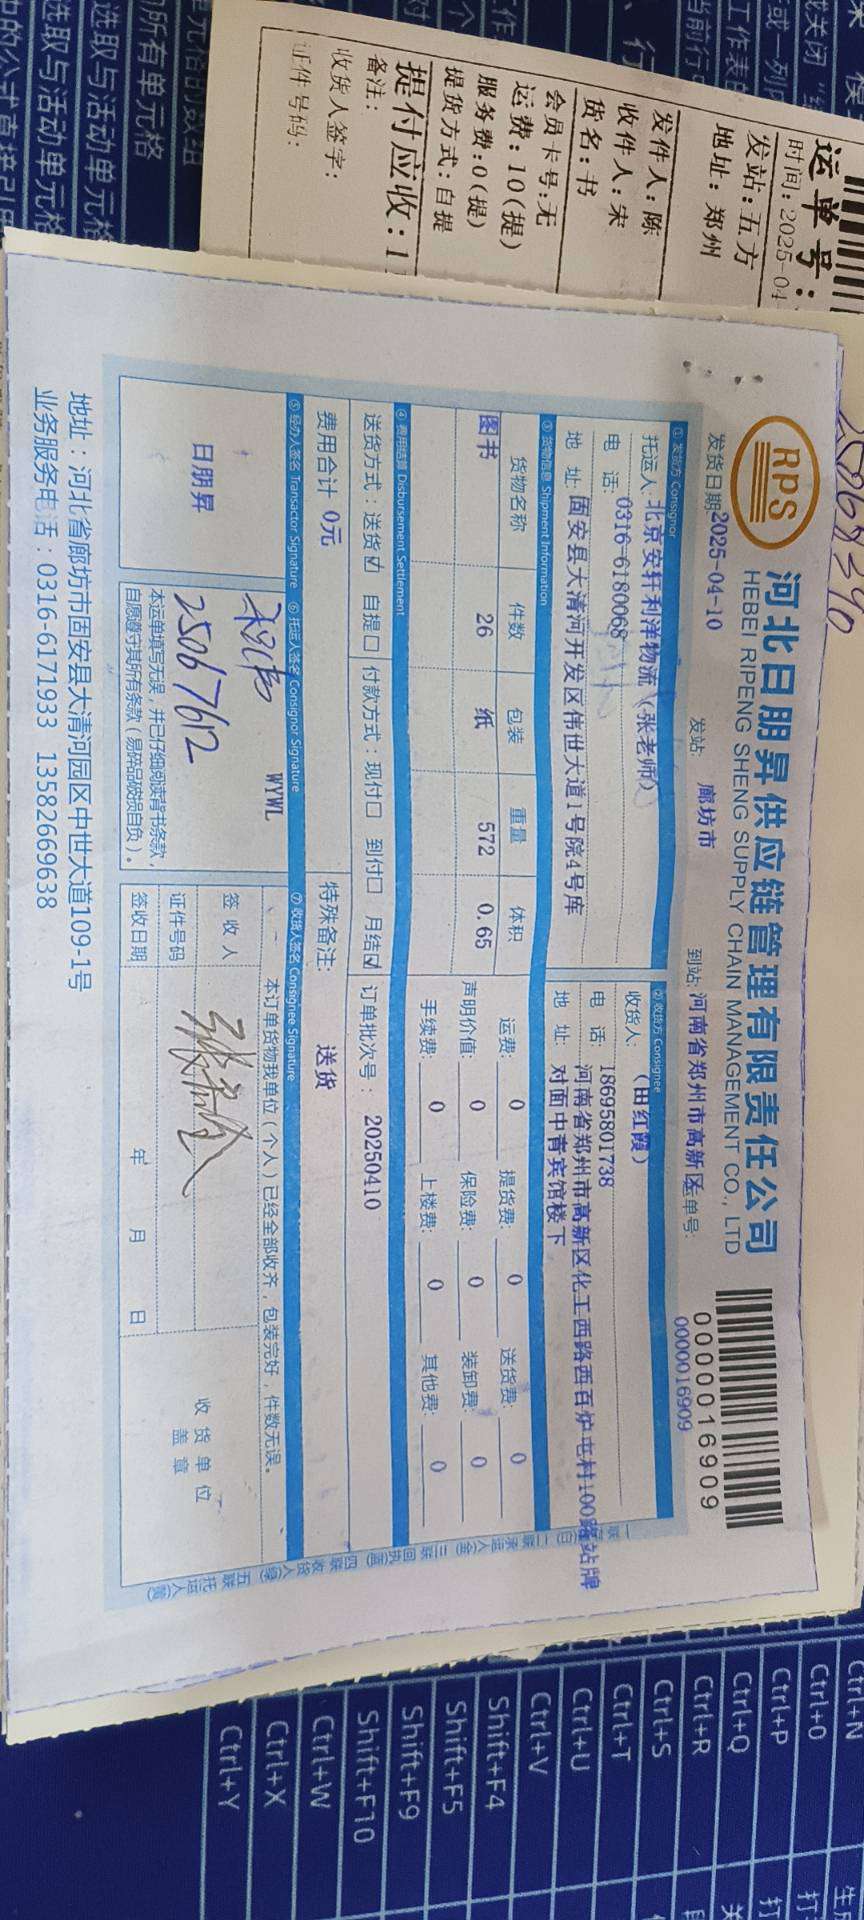 河北日朋昇供应链管理有限责任公司
HEBEI RIPENG SHENG SUPPLY CHAIN MANAGEMENT CO., LTD
RPS
0000016909
发货日期 2025-04-10 发站: 廊坊市 到站: 河南省郑州市高新区 运单号: 0000016909
① 发货方 Consignor
托运人: 北京安轩利洋物流 (张老师)
电 话: 0316-6180068
地 址: 固安县大清河开发区伟世大道1号院4号库
② 收货方 Consignee
收货人: (田红霞)
电 话: 18695801738
地 址: 河南省郑州市高新区化工西路西百炉屯村100路站牌
对面中青宾馆楼下
③ 货物信息 Shipment Information
货物名称 件数 包装 重量 体积
图书 26 纸 572 0.65
运费: 0 提货费: 0 送货费: 0
声明价值: 0 保险费: 0 装卸费: 0
手续费: 0 上楼费: 0 其他费: 0
④ 费用结算 Disbursement Settlement
送货方式: 送货☑ 自提☐ 付款方式: 现付☐ 到付☐ 月结☑ 订单批次号: 20250410
费用合计 0元 特殊备注: 送货
⑤ 经办人签名 Transactor Signature ⑥ 托运人签名 Consignor Signature ⑦ 收货人签名 Consignee Signature
日朋昇
WYWL
25067612
本运单填写无误,并已仔细阅读背书条款,
自愿遵守其所有条款(易碎品破损自负)。
本订单货物我单位(个人)已经全部收齐,包装完好,件数无误。
签 收 人
证件号码
签收日期 年 月 日
收货单位
盖 章
地址:河北省廊坊市固安县大清河园区中世大道109-1号
业务服务电话:0316-6171933 13582669638
运单号:
时间:2025-04
发站:五方
地址:郑州
发件人:陈
收件人:宋
货名:书
会员卡号:无
运费:10(提)
服务费:0(提)
提货方式:自提
提付应收:1
备注:
收货人签字:
证件号码:
Ctrl+N
Ctrl+O
Ctrl+P
Ctrl+Q
Ctrl+R
Ctrl+S
Ctrl+T
Ctrl+U
Ctrl+V
Shift+F4
Shift+F5
Shift+F9
Shift+F10
Ctrl+W
Ctrl+X
Ctrl+Y